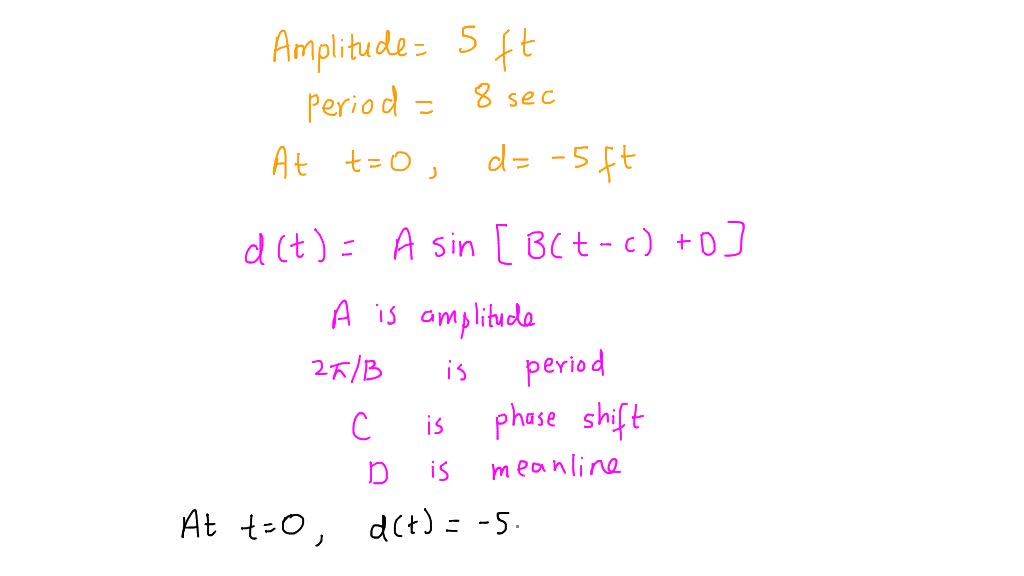 Amplitude = 5 ft
period = 8 sec
At t=0, d= -5 ft
d(t) = A sin [B(t-c) +D]
A is amplitude
2π/B is period
C is phase shift
D is meanline
At t=0, d(t) = -5.